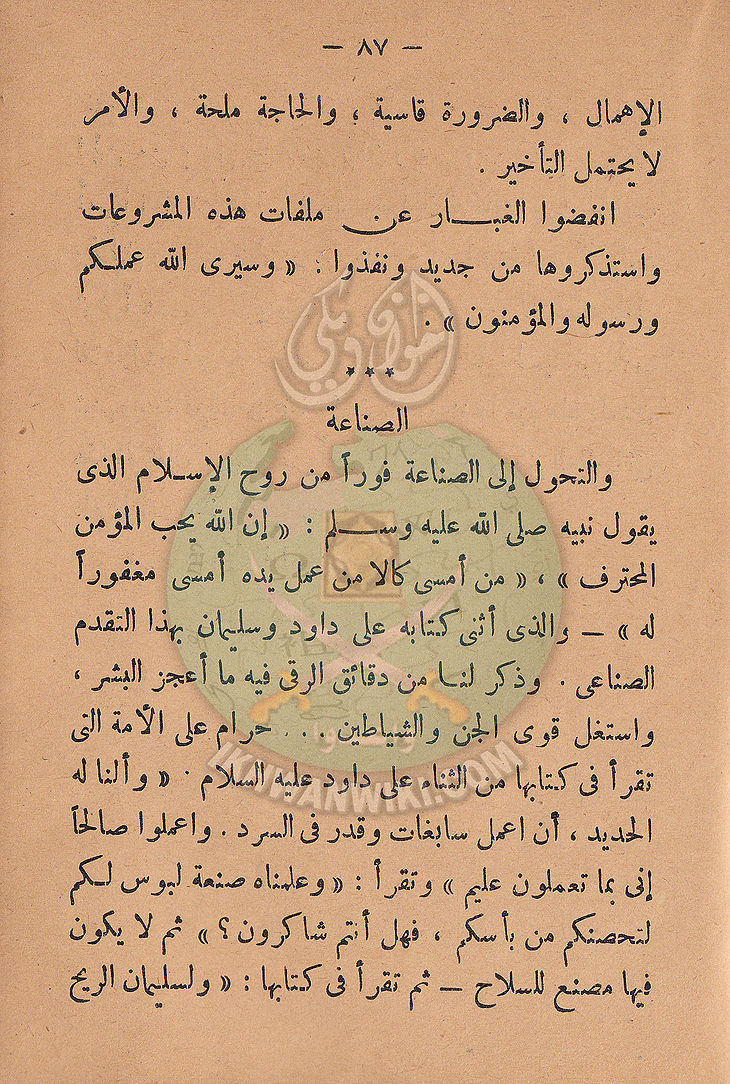 — ٨٧ —
الإهمال ، والضرورة قاسية ، والحاجة ملحة ، والأمر
لا يحتمل التأخير .
انفضوا الغبـــار عن ملفات هذه المشروعات
واستذكروها من جديد ونفذوا : « وسيرى الله عملكم
ورسوله والمؤمنون » .
إخوان ويكي
* * *
الصناعة
والتحول إلى الصناعة فوراً من روح الإسلام الذى
يقول نبيه صلى الله عليه وسلم : « إن الله يحب المؤمن
المحترف » ، « من أمسى كالا من عمل يده أمسى مغفوراً
له » — والذى أثنى كتابه على داود وسليمان بهذا التقدم
الصناعى . وذكر لنا من دقائق الرقى فيه ما أعجز البشر ،
واستغل قوى الجن والشياطين ... حرام على الأمة التى
تقرأ فى كتابها من الثناء على داود عليه السلام . « وألنا له
IKHWANWIKI.COM
الحديد ، أن اعمل سابغات وقدر فى السرد . واعملوا صالحاً
إنى بما تعملون عليم » وتقرأ : « وعلمناه صنعة لبوس لكم
لتحصنكم من بأسكم ، فهل أنتم شاكرون ؟ » ثم لا يكون
فيها مصنع للسلاح — ثم تقرأ فى كتابها : « ولسليمان الريح